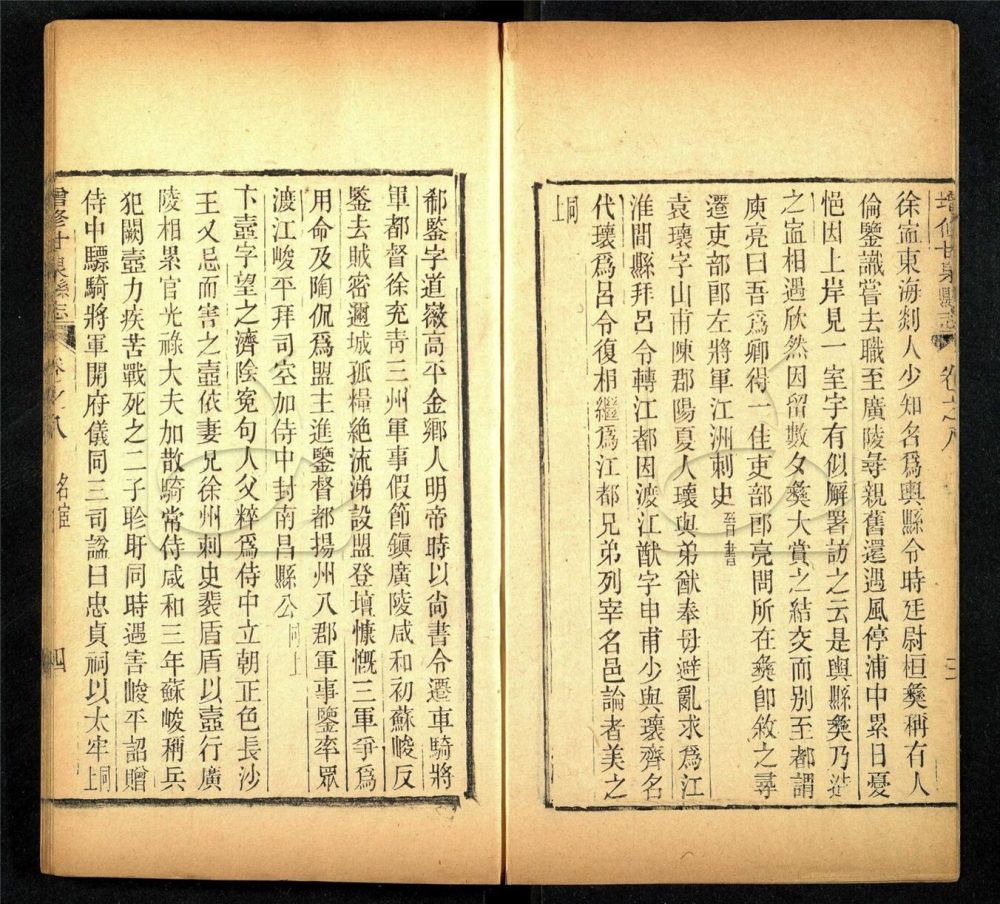 增修甘泉縣志 卷之八 三
徐寍東海剡人少知名爲輿縣令時廷尉桓彝稱有人
倫鑒識嘗去職至廣陵尋親舊還遇風停浦中累日憂
悒因上岸見一室宇有似廨署訪之云是輿縣彝乃造
之寍相遇欣然因留數夕彝大賞之結交而别至都謂
庾亮曰吾爲卿得一佳吏部郎亮問所在彝卽敘之尋
遷吏部郎左將軍江洲刺史晉書
袁瓌字山甫陳郡陽夏人瓌與弟猷奉母避亂求爲江
淮間縣拜呂令轉江都因渡江猷字申甫少與瓌齊名
代瓌爲呂令復相繼爲江都兄弟列宰名邑論者美之
同上
郗鑒字道薇高平金鄉人明帝時以尙書令遷車騎將
軍都督徐兖青三州軍事假節鎭廣陵咸和初蘇峻反
鑒去賊密邇城孤糧絶流涕設盟登壇慷慨三軍爭爲
用命及陶侃爲盟主進鑒督都揚州八郡軍事鑒率眾
渡江峻平拜司空加侍中封南昌縣公同上
卞壼字望之濟陰寃句人父粹爲侍中立朝正色長沙
王乂忌而害之壼依妻兄徐州刺史裴盾盾以壼行廣
陵相累官光祿大夫加散騎常侍咸和三年蘇峻稱兵
犯闕壼力疾苦戰死之二子眕盱同時遇害峻平詔贈
侍中驃騎將軍開府儀同三司諡曰忠貞祠以太牢同上
增修甘泉縣志 卷之八 名宦 四